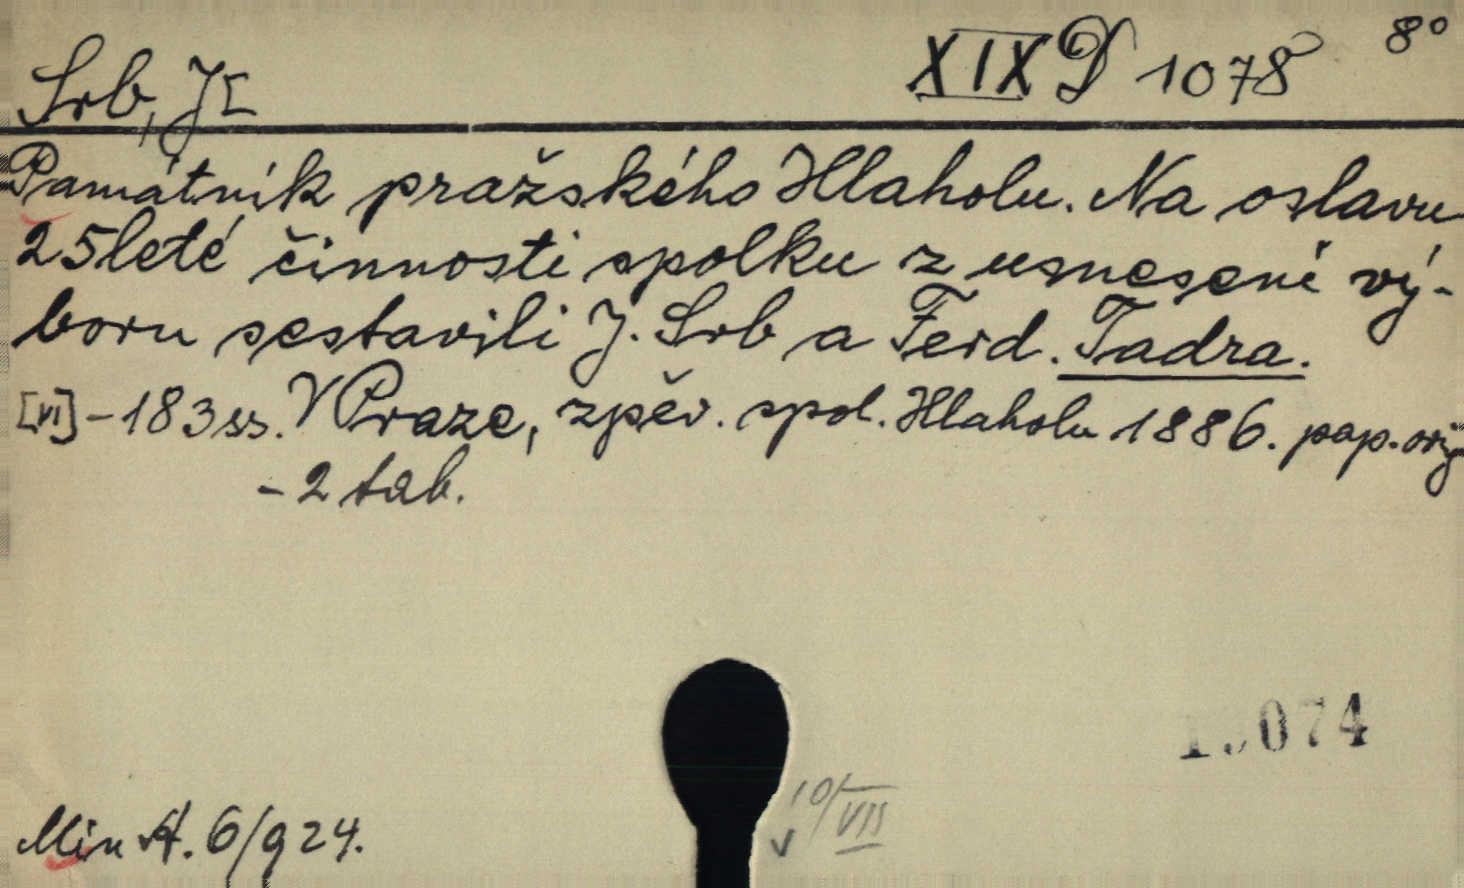 Srb, J[
XIX D 1078
8°
Památník pražského Hlaholu. Na oslavu
25leté činnosti spolku z usnesení vý-
boru sestavili J. Srb a Ferd. Tadra.
[VI] - 183 ss. V Praze, zpěv. spol. Hlaholu 1886. pap. orig
- 2 tab.
074
10/VII
Min A. 6/924.